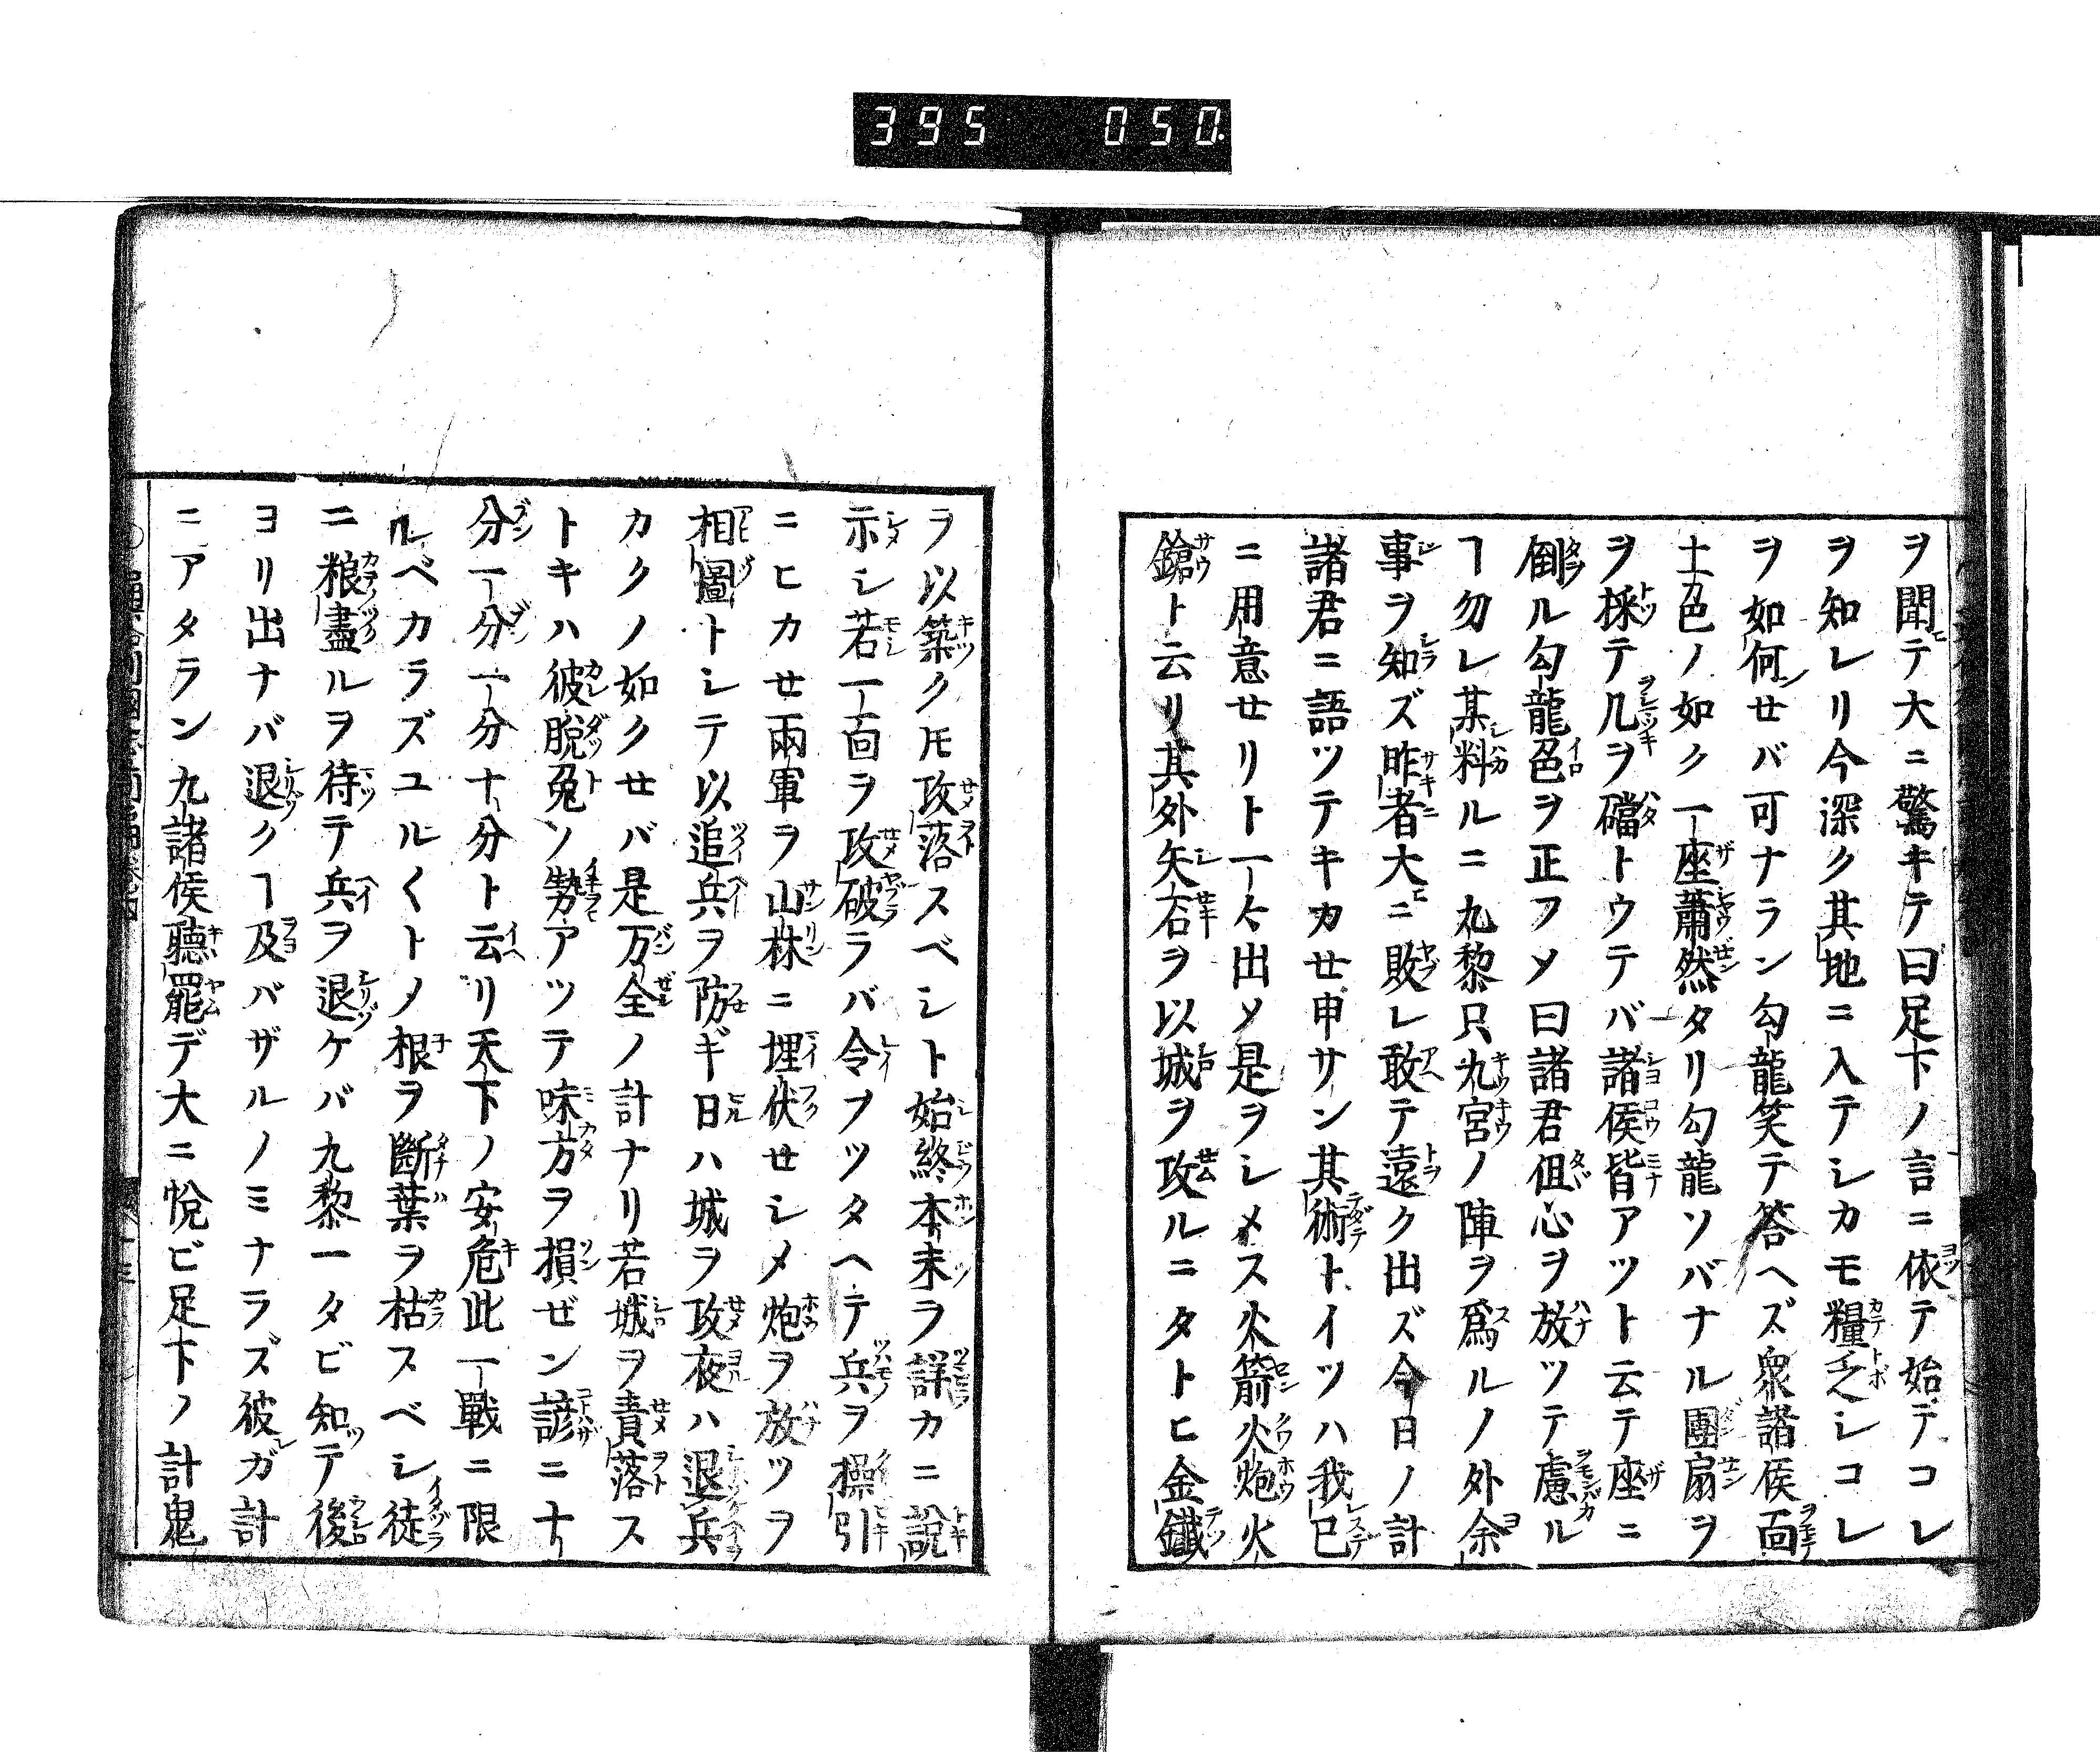 395 050.
ヲ聞テ大ニ驚キテ曰足下ノ言ニ依テ始デコレ
ヲ知レリ今深ク其地ニ入テシカモ糧乏シコレ
ヲ如何セバ可ナラン勾龍笑テ答ヘズ衆諸侯面
土色ノ如ク一座蕭然タリ勾龍ソバナル團扇ヲ
ヲ採テ几ヲ礑トウテバ諸侯皆アツト云テ座ニ
倒ル勾龍色ヲ正フメ曰諸君伹心ヲ放ツテ慮ル
ヿ勿レ某料ルニ九黎只九宮ノ陣ヲ爲ルノ外余
事ヲ知ズ昨者大ニ敗レ敢テ遠ク出ズ今日ノ計
諸君ニ語ツテキカせ申サン其術トイツハ我已
ニ用意せリト一々出メ是ヲシメス火箭火炮火
鎗ト云リ其外矢石ヲ以城ヲ攻ルニタトヒ金鐵
ヲ以築クモ攻落スベシト始終本末ヲ詳カニ說
示シ若一面ヲ攻破ラバ令ヲツタヘテ兵ヲ操引
ニヒカせ兩軍ヲ山林ニ埋伏せシメ炮ヲ放ツヲ
相圖トシテ以追兵ヲ防ギ日ハ城ヲ攻夜ハ退兵
カクノ如クせバ是万全ノ計ナリ若城ヲ責落ス
トキハ彼脫兔ノ勢アツテ味方ヲ損ゼン諺ニ十
分一分一分十分ト云リ天下ノ安危此一戰ニ限
ルベカラズユルくトメ根ヲ斷葉ヲ枯スベシ徒
ニ粮盡ルヲ待テ兵ヲ退ケバ九黎一タビ知テ後
ヨリ出ナバ退クヿ及バザルノミナラズ彼ガ計
ニアタラン九諸侯聽罷デ大ニ悅ビ足下ノ計鬼